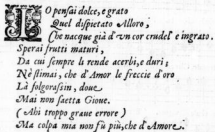 IO pensai dolce, e grato
Quel dispietato Alloro,
Che nacque già d'vn cor crudel e ingrato.
Sperai frutti maturi,
Da cui sempre li rende acerbi, e duri;
Nè stimai, che d'Amor le freccie d'oro
Là folgorasin, doue
Mai non saetta Gioue.
(Ahi troppo graue errore)
Ma colpa mia non fu più, che d'Amore.